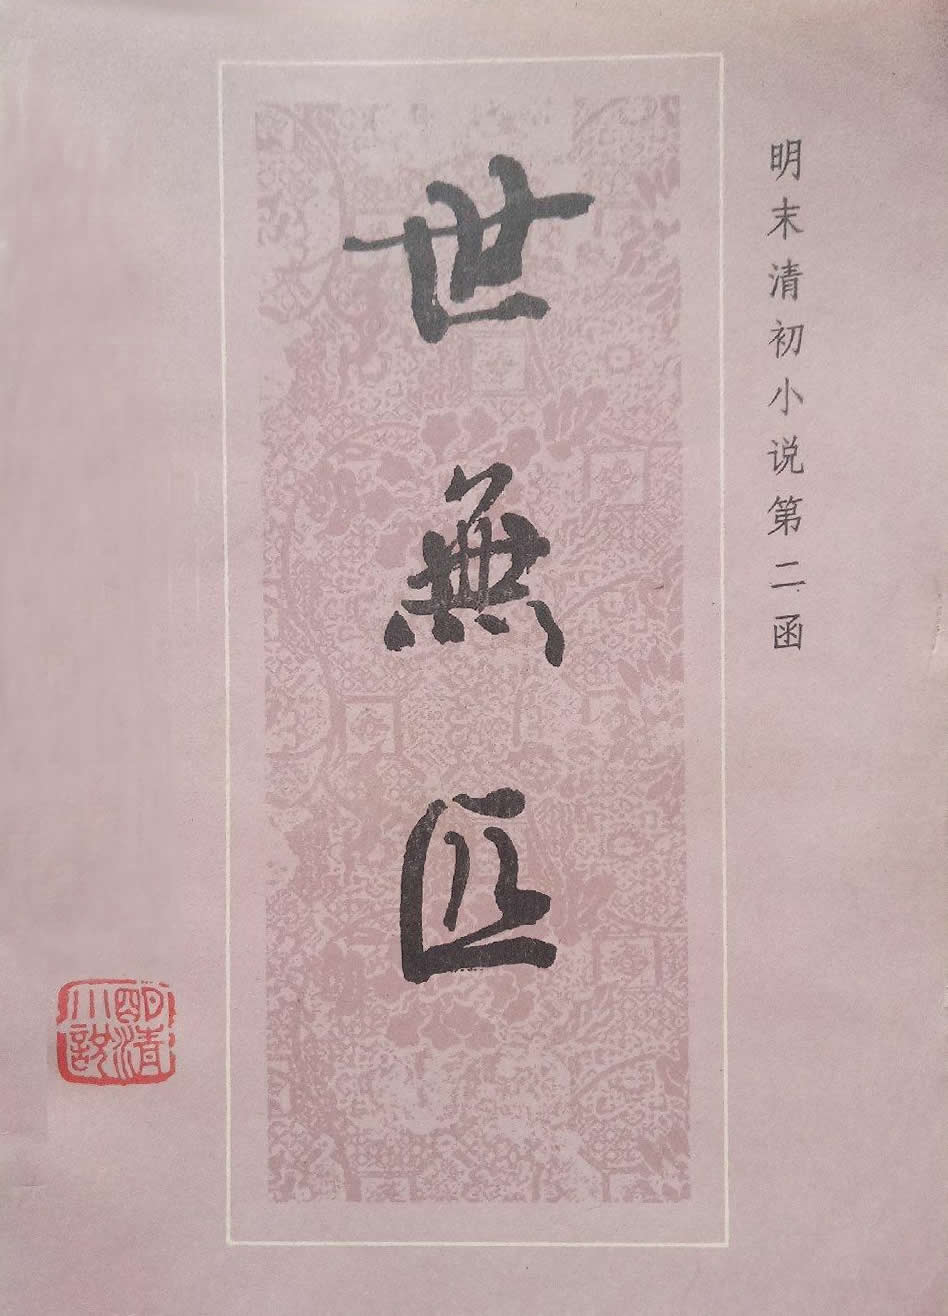 明末清初小说第二函
世無匹
明清
小説